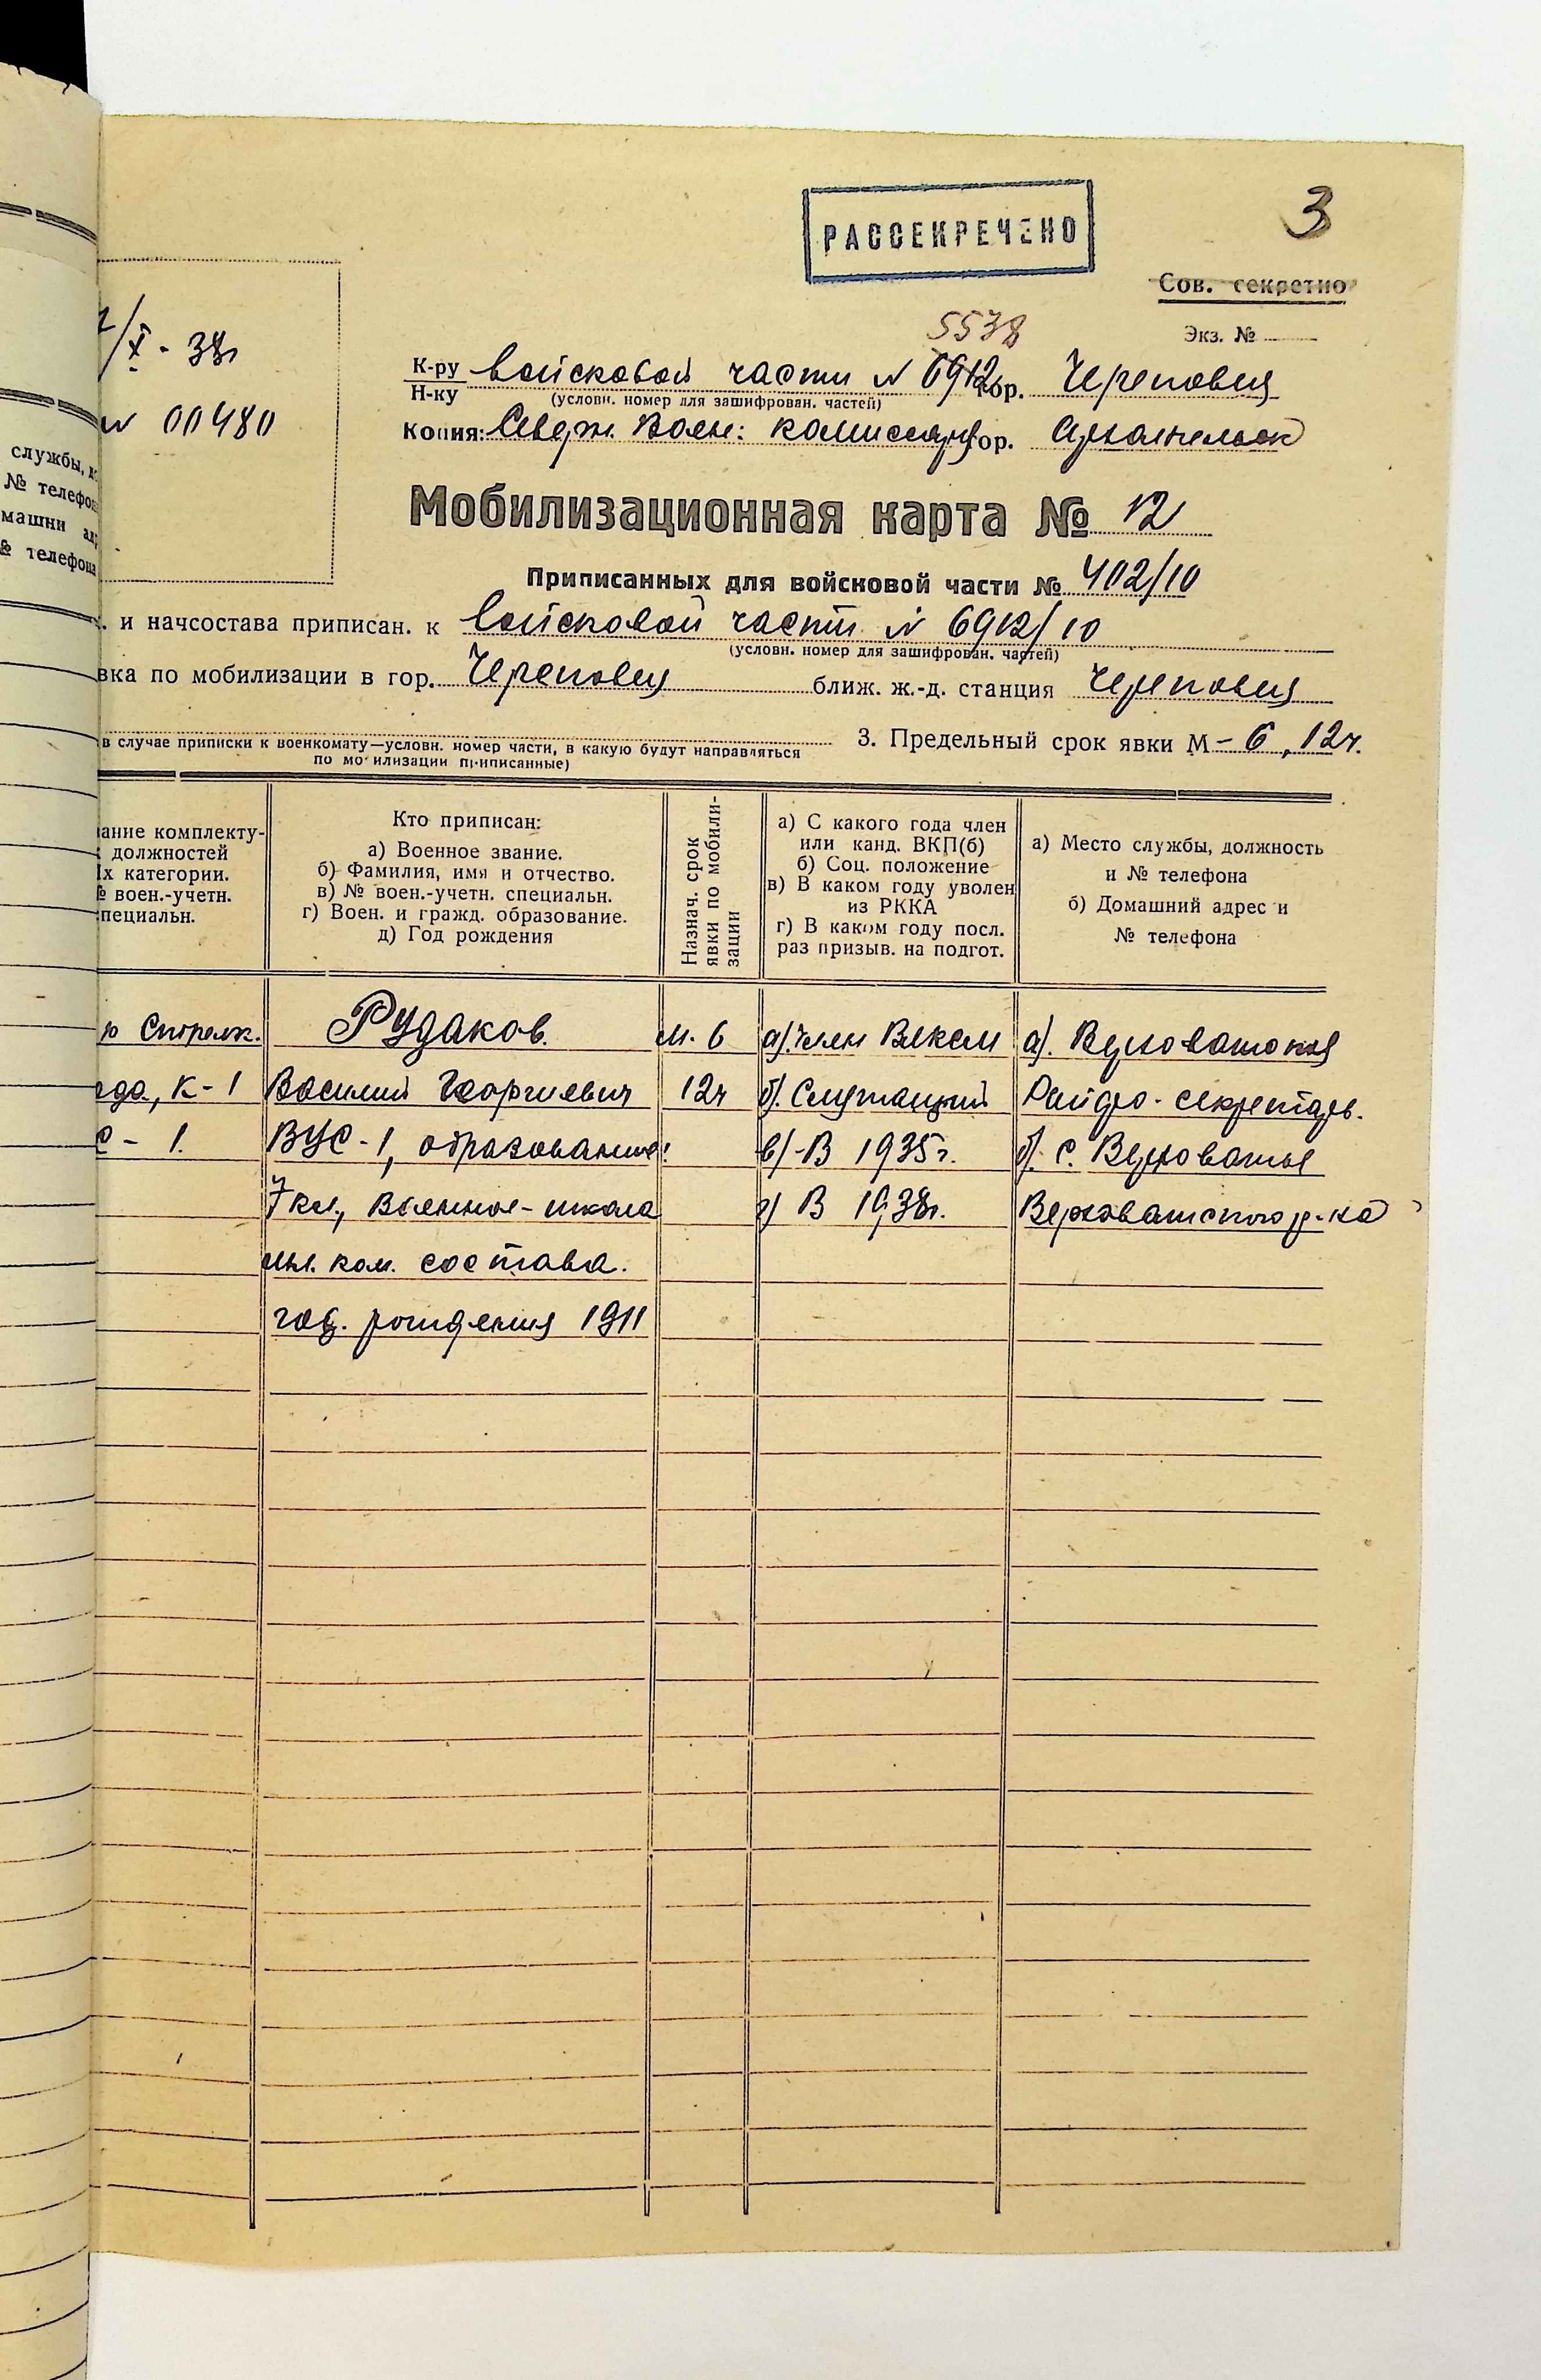 РАССЕКРЕЧЕНО
3
Сов. секретно
Экз. №
/X - 38г
5538
К-ру
Н-ку
войсковой части N 6912 гор. Череповец
(условн. номер для зашифрован. частей)
N 00480
Копия: Северн. Воен: комиссару гор. Архангельск
службы,
№ телефон
машни ад
№ телефона
Мобилизационная карта № 12
Приписанных для войсковой части № 402/10
и начсостава приписан. к войсковой части N 6912/10
(условн. номер для зашифрован. частей)
вка по мобилизации в гор. Череповец ближ. ж.-д. станция Череповец
3. Предельный срок явки М - 6, 12ч.
в случае приписки к военкомату—условн. номер части, в какую будут направляться
по мобилизации приписанные)
ание комплекту-
должностей
х категории.
№ воен.-учетн.
специальн.
Кто приписан:
а) Военное звание.
б) Фамилия, имя и отчество.
в) № воен.-учетн. специальн.
г) Воен. и гражд. образование.
д) Год рождения
Назнач. срок
явки по мобили-
зации
а) С какого года член
или канд. ВКП(б)
б) Соц. положение
в) В каком году уволен
из РККА
г) В каком году посл.
раз призыв. на подгот.
а) Место службы, должность
и № телефона
б) Домашний адрес и
№ телефона
ю Стрелк.
ода, К-1
С - 1.
Рудаков.
Василий Георгиевич
ВУС-1, образование:
7 кл., Военное - школа
мл. ком. состава.
год. рождения 1911
М. 6
12ч
а). член Влксм
б). Служащий
в) - В 1935г.
г) В 1938г.
а). Верховажский
Райфо - секретарь.
б). С. Верховажье
Верховажского р-на